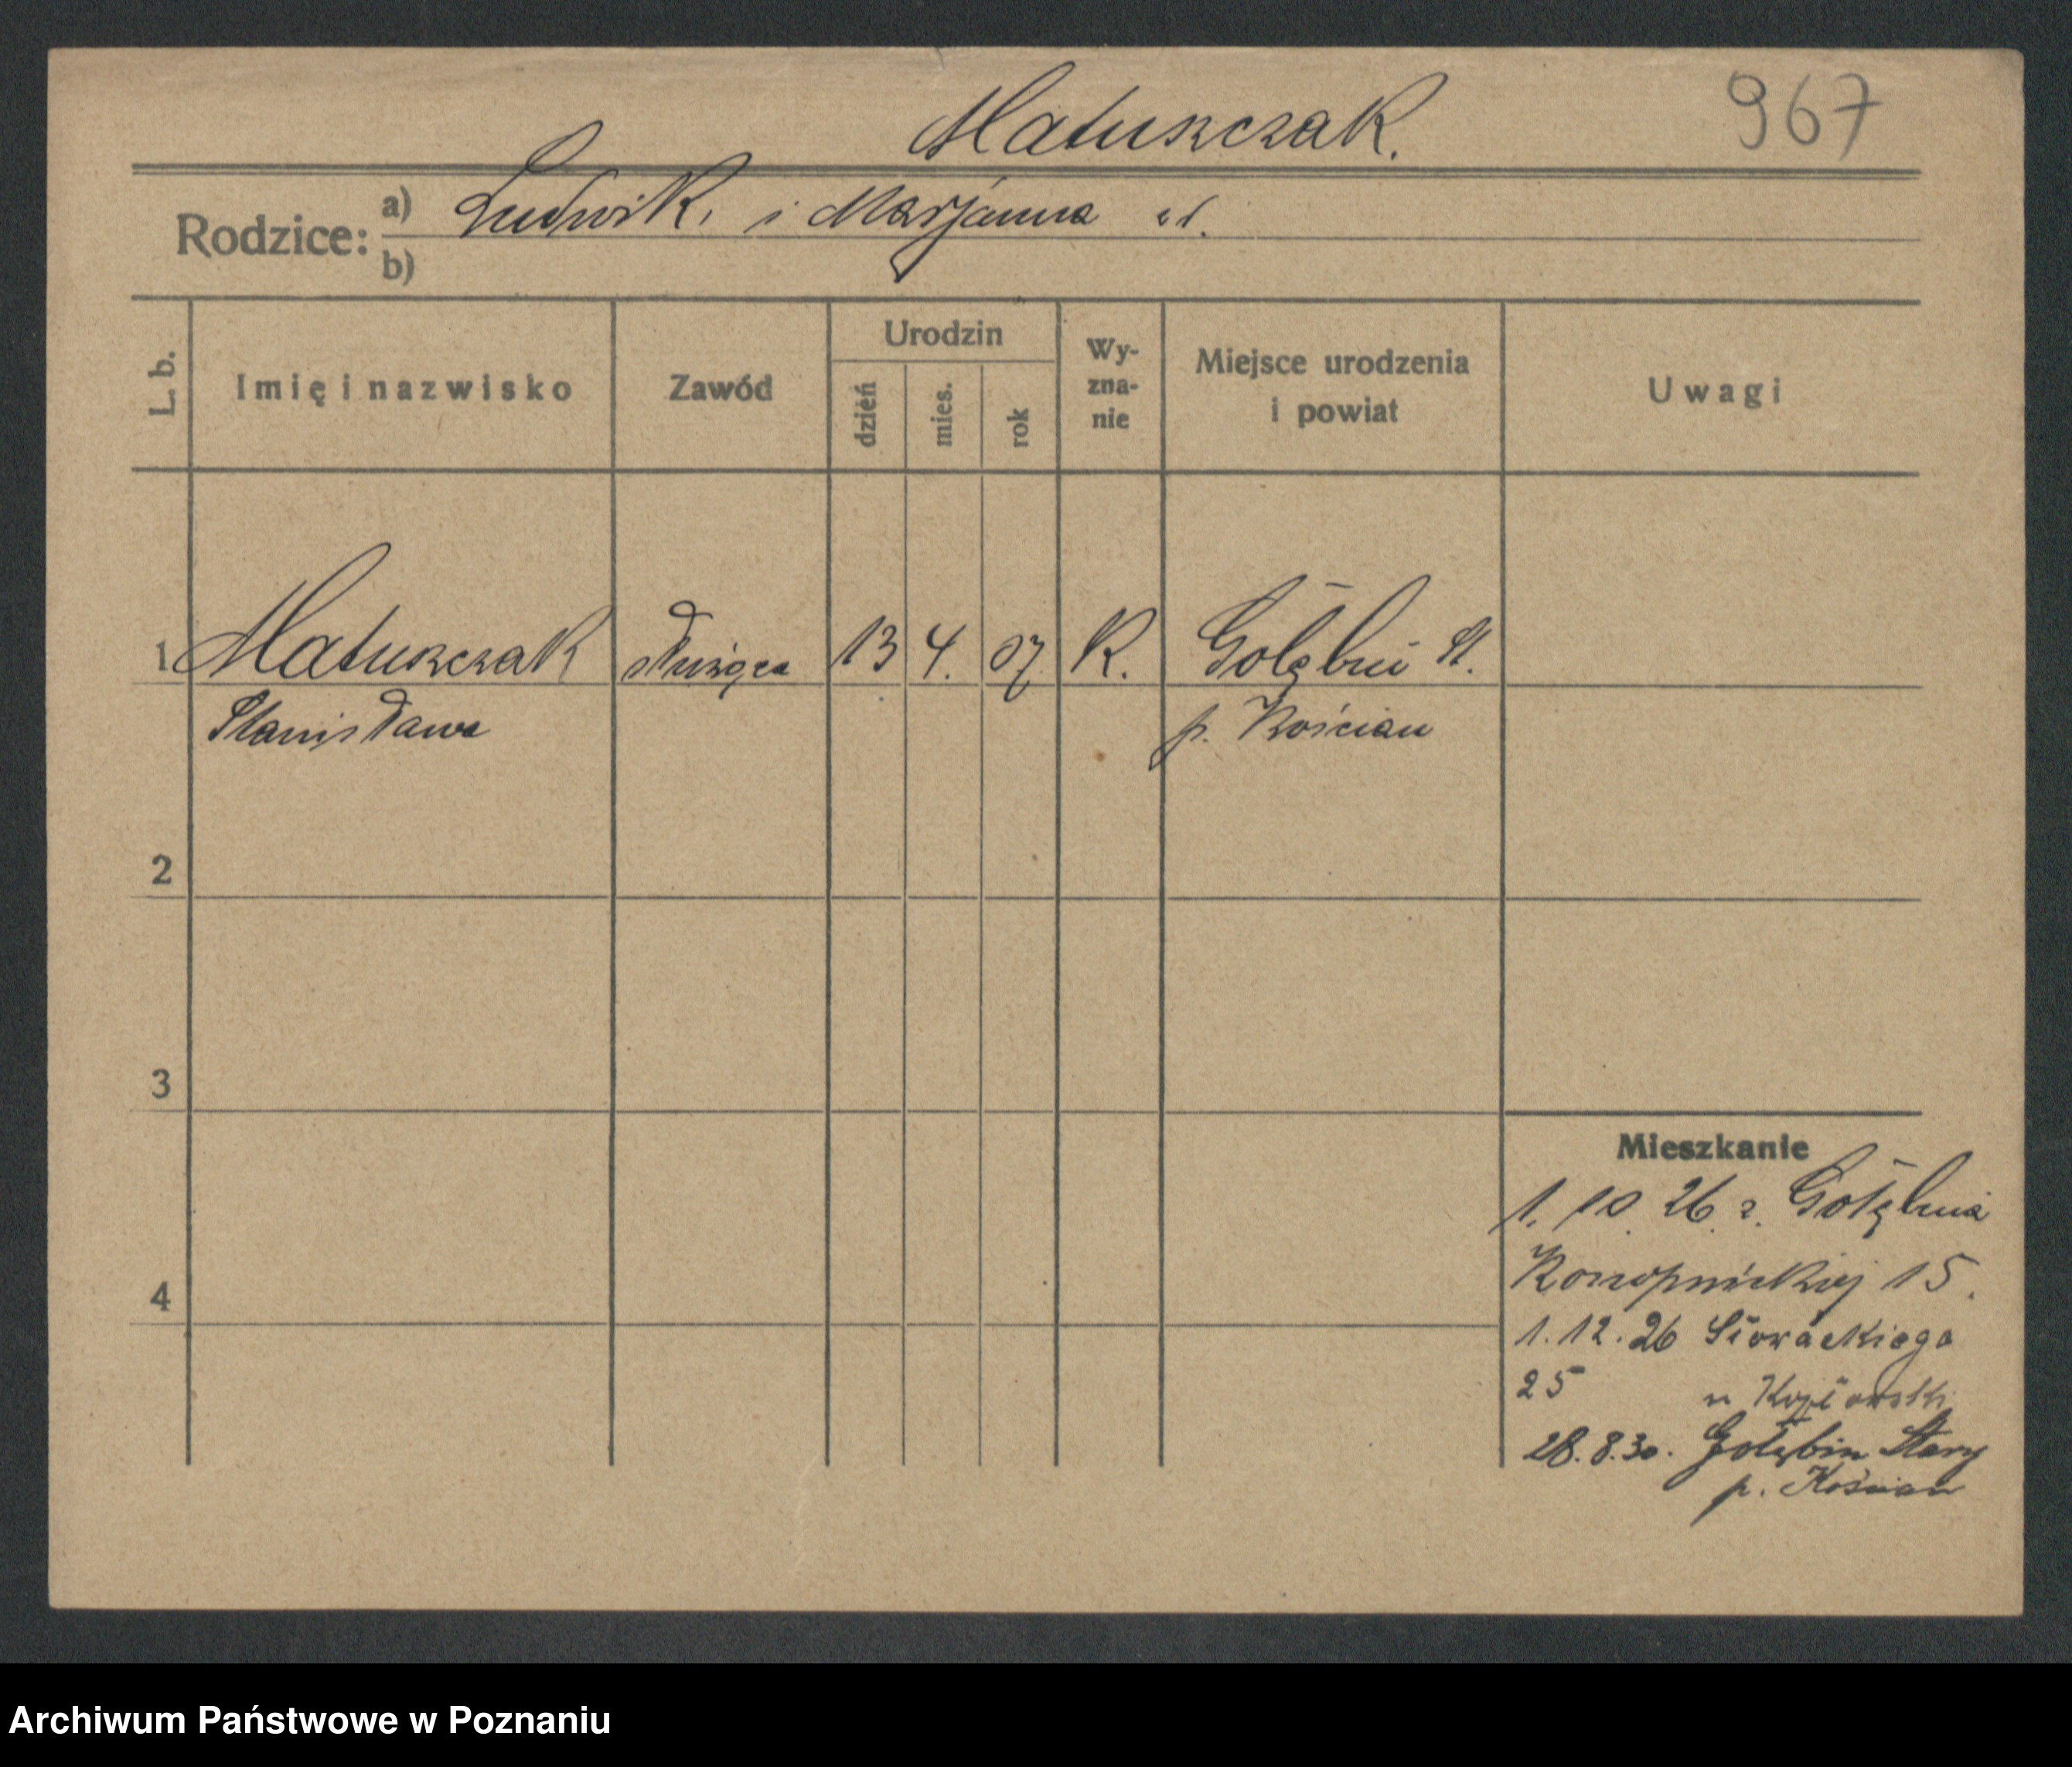 Matuszczak.
967
Rodzice:
a) Ludwik. i Marjanna
b)
L. b.
Imię i nazwisko
Zawód
Urodzin
dzień
mies.
rok
Wy-
zna-
nie
Miejsce urodzenia
i powiat
Uwagi
1 Matuszczak służąca 13 4. 07 K. Gołębin St.
Stanisława p. Kościan
2
3
4
Mieszkanie
1. 10. 26 z. Gołębina
Konopnickiej 15.
1.12.26 Słowackiego
25 u
28.8.30. Gołębin Stary
p. Kościan
Archiwum Państwowe w Poznaniu